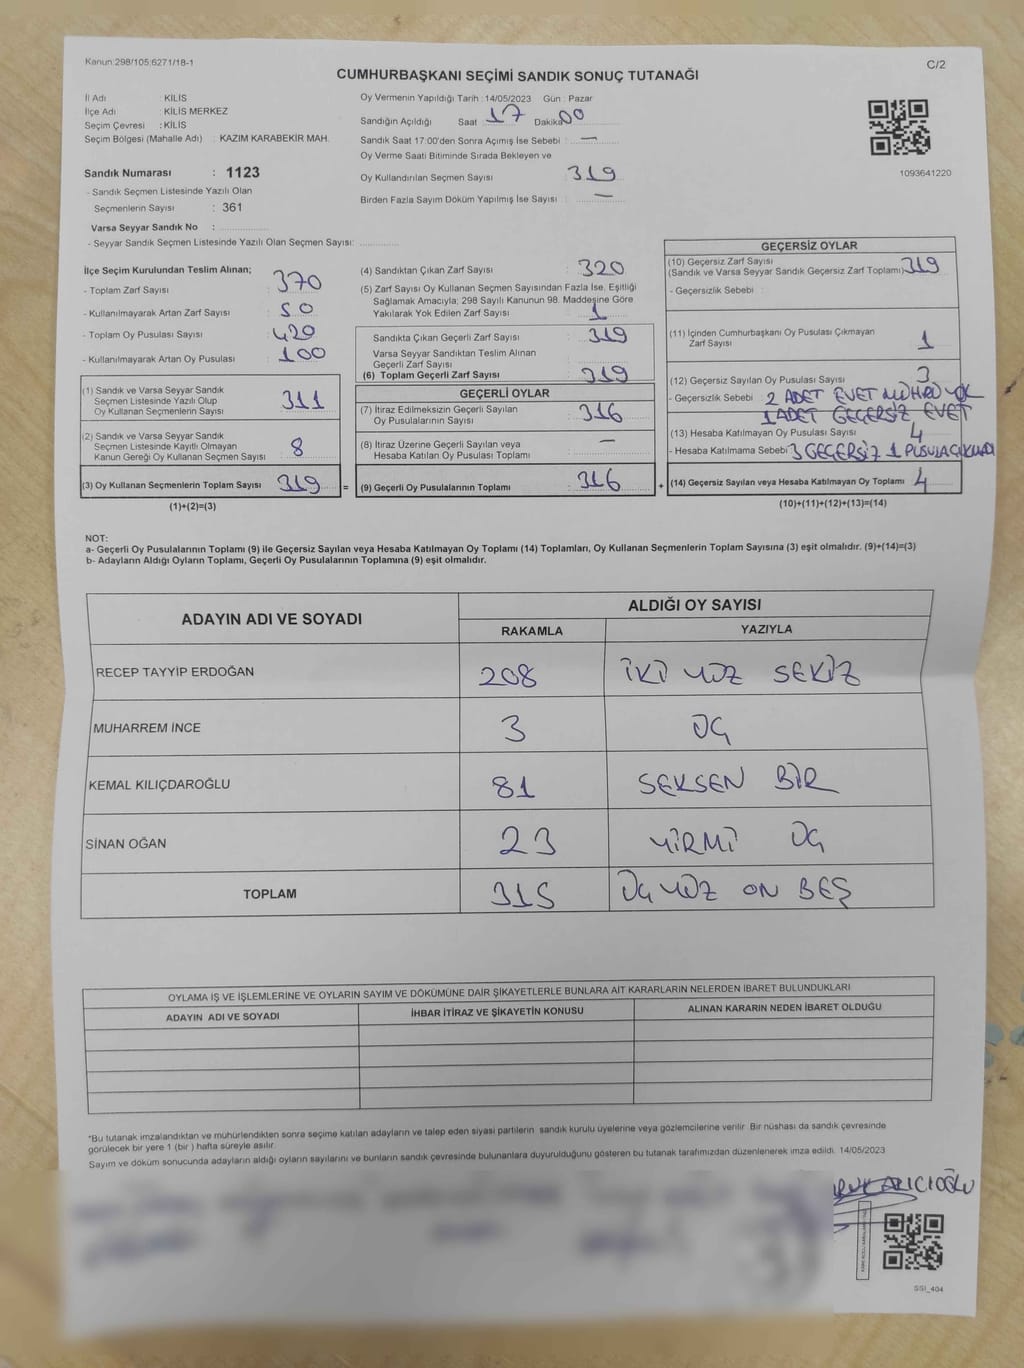 Kanun:298/105:6271/18-1
C/2
CUMHURBAŞKANI SEÇİMİ SANDIK SONUÇ TUTANAĞI
İl Adı : KİLİS
İlçe Adı : KİLİS MERKEZ
Seçim Çevresi : KİLİS
Seçim Bölgesi (Mahalle Adı) : KAZIM KARABEKİR MAH.
Sandık Numarası : 1123
- Sandık Seçmen Listesinde Yazılı Olan
Seçmenlerin Sayısı : 361
Varsa Seyyar Sandık No :
- Seyyar Sandık Seçmen Listesinde Yazılı Olan Seçmen Sayısı:
Oy Vermenin Yapıldığı Tarih : 14/05/2023 Gün : Pazar
Sandığın Açıldığı Saat : 17 Dakika 00
Sandık Saat 17:00'den Sonra Açımış İse Sebebi : —
Oy Verme Saati Bitiminde Sırada Bekleyen ve
Oy Kullandırılan Seçmen Sayısı : 319
Birden Fazla Sayım Döküm Yapılmış İse Sayısı : —
1093641220
İlçe Seçim Kurulundan Teslim Alınan;
- Toplam Zarf Sayısı : 370
- Kullanılmayarak Artan Zarf Sayısı : 50
- Toplam Oy Pusulası Sayısı : 420
- Kullanılmayarak Artan Oy Pusulası : 100
(1) Sandık ve Varsa Seyyar Sandık
Seçmen Listesinde Yazılı Olup
Oy Kullanan Seçmenlerin Sayısı : 311
(2) Sandık ve Varsa Seyyar Sandık
Seçmen Listesinde Kayıtlı Olmayan
Kanun Gereği Oy Kullanan Seçmen Sayısı : 8
(3) Oy Kullanan Seçmenlerin Toplam Sayısı : 319 =
(1)+(2)=(3)
(4) Sandıktan Çıkan Zarf Sayısı : 320
(5) Zarf Sayısı Oy Kullanan Seçmen Sayısından Fazla İse, Eşitliği
Sağlamak Amacıyla; 298 Sayılı Kanunun 98. Maddesine Göre
Yakılarak Yok Edilen Zarf Sayısı : 1
Sandıkta Çıkan Geçerli Zarf Sayısı : 319
Varsa Seyyar Sandıktan Teslim Alınan
Geçerli Zarf Sayısı :
(6) Toplam Geçerli Zarf Sayısı : 319
GEÇERLİ OYLAR
(7) İtiraz Edilmeksizin Geçerli Sayılan
Oy Pusulalarının Sayısı : 316
(8) İtiraz Üzerine Geçerli Sayılan veya
Hesaba Katılan Oy Pusulaları Toplamı : —
(9) Geçerli Oy Pusulalarının Toplamı : 316 +
GEÇERSİZ OYLAR
(10) Geçersiz Zarf Sayısı
(Sandık ve Varsa Seyyar Sandık Geçersiz Zarf Toplamı) : 319
- Geçersizlik Sebebi :
(11) İçinden Cumhurbaşkanı Oy Pusulası Çıkmayan
Zarf Sayısı : 1
(12) Geçersiz Sayılan Oy Pusulası Sayısı : 3
- Geçersizlik Sebebi : 2 ADET EVET MÜHRÜ YOK
1 ADET GEÇERSİZ EVET
(13) Hesaba Katılmayan Oy Pusulası Sayısı : 4
- Hesaba Katılmama Sebebi : 3 GEÇERSİZ 1 PUSULA ÇIKMADI
(14) Geçersiz Sayılan veya Hesaba Katılmayan Oy Toplamı : 4
(10)+(11)+(12)+(13)=(14)
NOT:
a- Geçerli Oy Pusulalarının Toplamı (9) ile Geçersiz Sayılan veya Hesaba Katılmayan Oy Toplamı (14) Toplamları, Oy Kullanan Seçmenlerin Toplam Sayısına (3) eşit olmalıdır. (9)+(14)=(3)
b- Adayların Aldığı Oyların Toplamı, Geçerli Oy Pusulalarının Toplamına (9) eşit olmalıdır.
ADAYIN ADI VE SOYADI ALDIĞI OY SAYISI
RAKAMLA YAZIYLA
RECEP TAYYİP ERDOĞAN 208 İKİ YÜZ SEKİZ
MUHARREM İNCE 3 ÜÇ
KEMAL KILIÇDAROĞLU 81 SEKSEN BİR
SİNAN OĞAN 23 YİRMİ ÜÇ
TOPLAM 315 ÜÇ YÜZ ON BEŞ
OYLAMA İŞ VE İŞLEMLERİNE VE OYLARIN SAYIM VE DÖKÜMÜNE DAİR ŞİKAYETLERLE BUNLARA AİT KARARLARIN NELERDEN İBARET BULUNDUKLARI
ADAYIN ADI VE SOYADI İHBAR İTİRAZ VE ŞİKAYETİN KONUSU ALINAN KARARIN NEDEN İBARET OLDUĞU
*Bu tutanak imzalandıktan ve mühürlendikten sonra seçime katılan adayların ve talep eden siyasi partilerin sandık kurulu üyelerine veya gözlemcilerine verilir. Bir nüshası da sandık çevresinde
görülecek bir yere 1 (bir ) hafta süreyle asılır.
Sayım ve döküm sonucunda adayların aldığı oyların sayılarını ve bunların sandık çevresinde bulunanlara duyurulduğunu gösteren bu tutanak tarafımızdan düzenlenerek imza edildi. 14/05/2023
SSİ_404